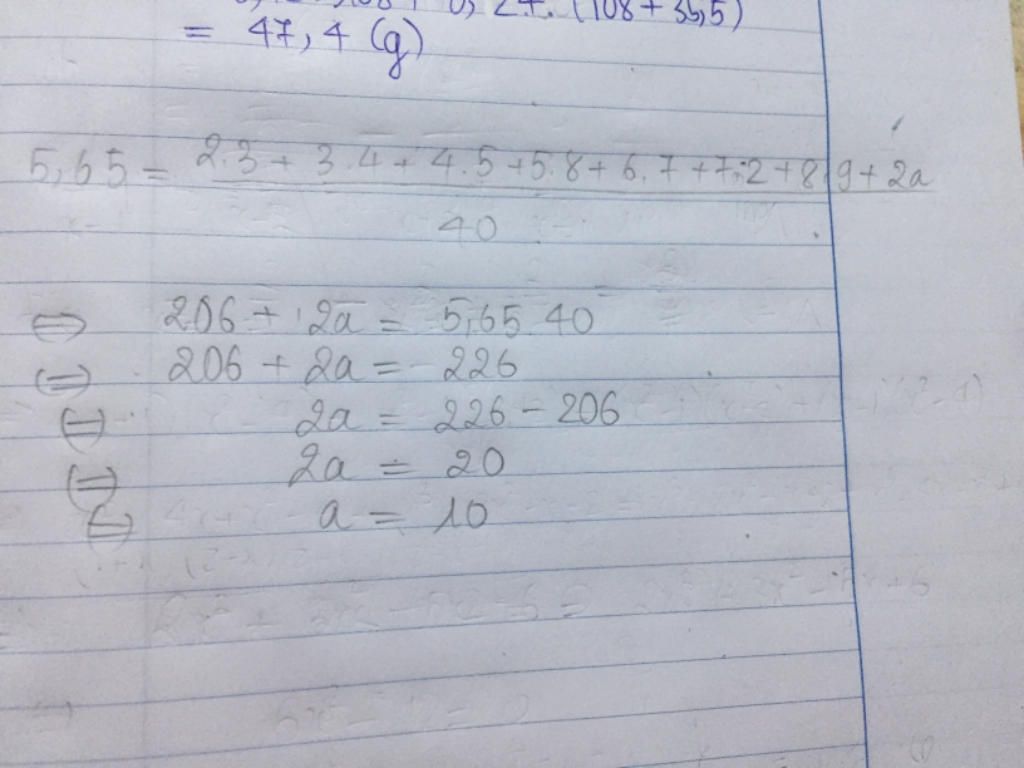 (108 + 35,5)
= 47,4 (g)
5,65 = 2.3 + 3.4 + 4.5 + 5.8 + 6.7 + 7.2 + 8.9 + 2a
40
⇔ 206 + 2a = 5,65 40
⇔ 206 + 2a = 226
⇔ 2a = 226 - 206
⇔ 2a = 20
⇔ a = 10